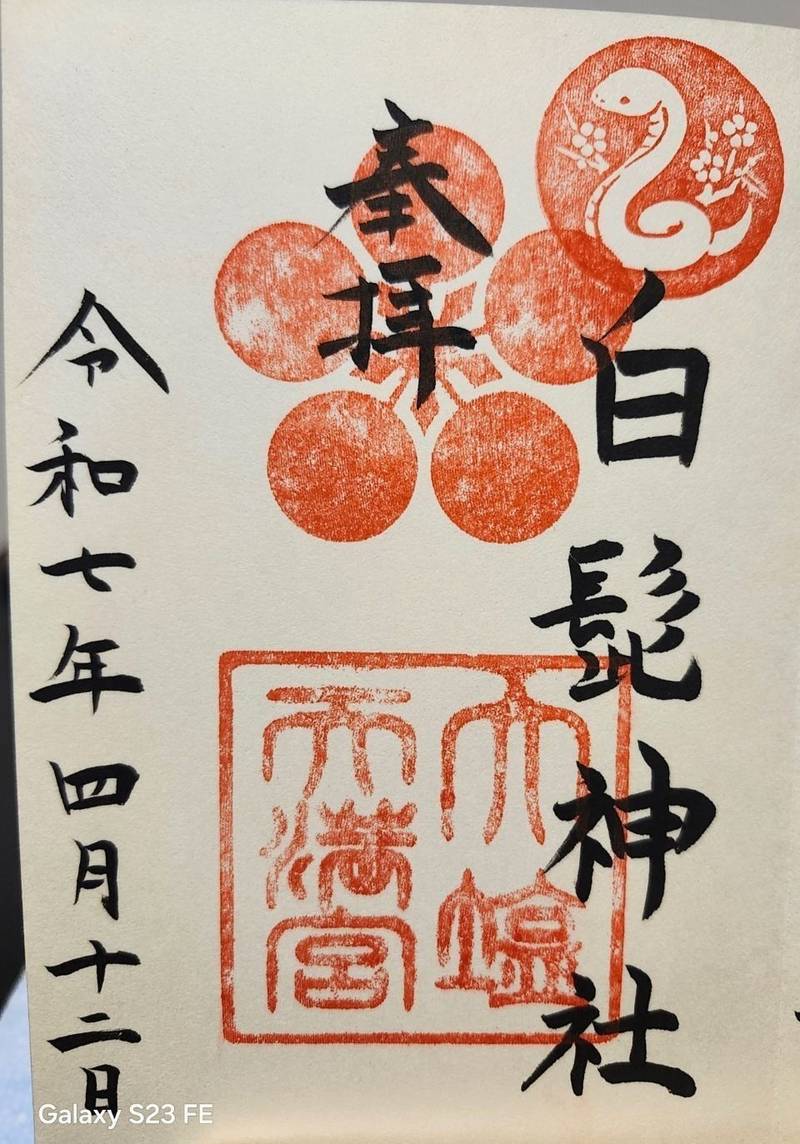 奉拝
白髭神社
大塩
天満宮
令和七年四月十二日
Galaxy S23 FE